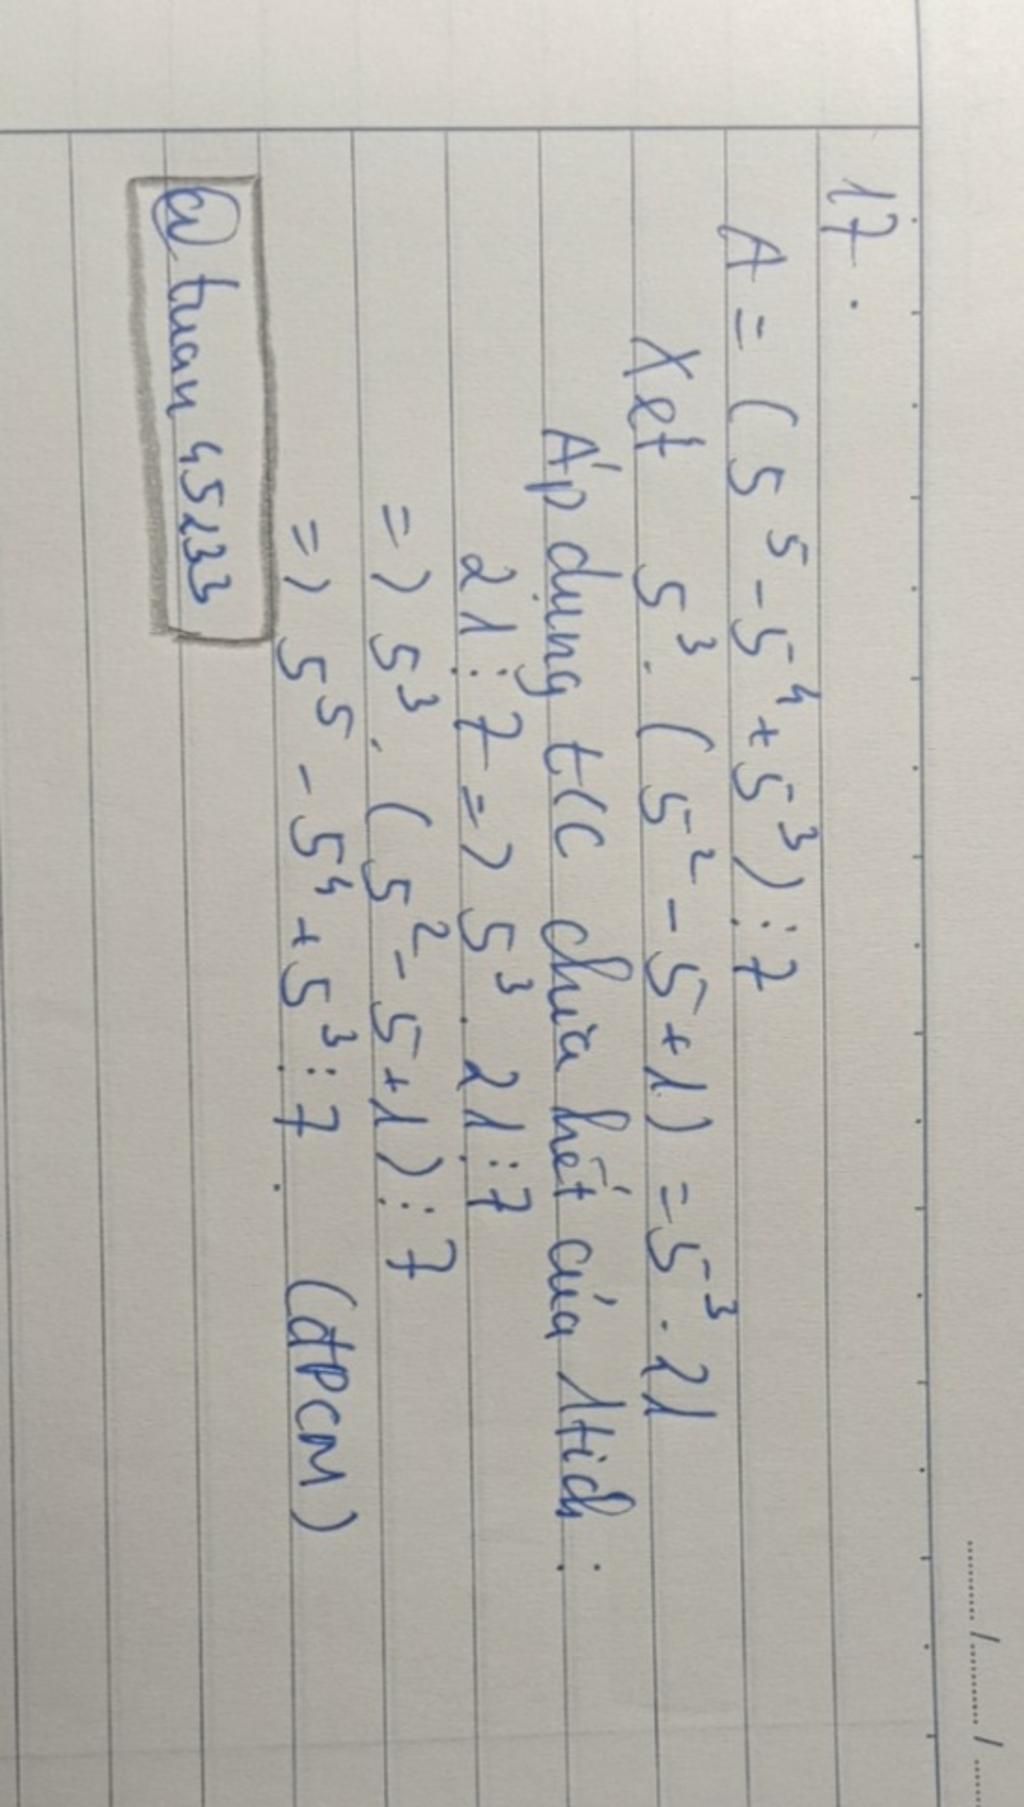 17.
A = (5⁵ - 5⁴ + 5³) ⋮ 7
Xét 5³. (5² - 5 + 1) = 5³. 21
Áp dụng t/c chia hết của 1 tích :
21 ⋮ 7 => 5³. 21 ⋮ 7
=> 5³. (5² - 5 + 1) ⋮ 7
=> 5⁵ - 5⁴ + 5³ ⋮ 7. (đPCM)
@tuan45233